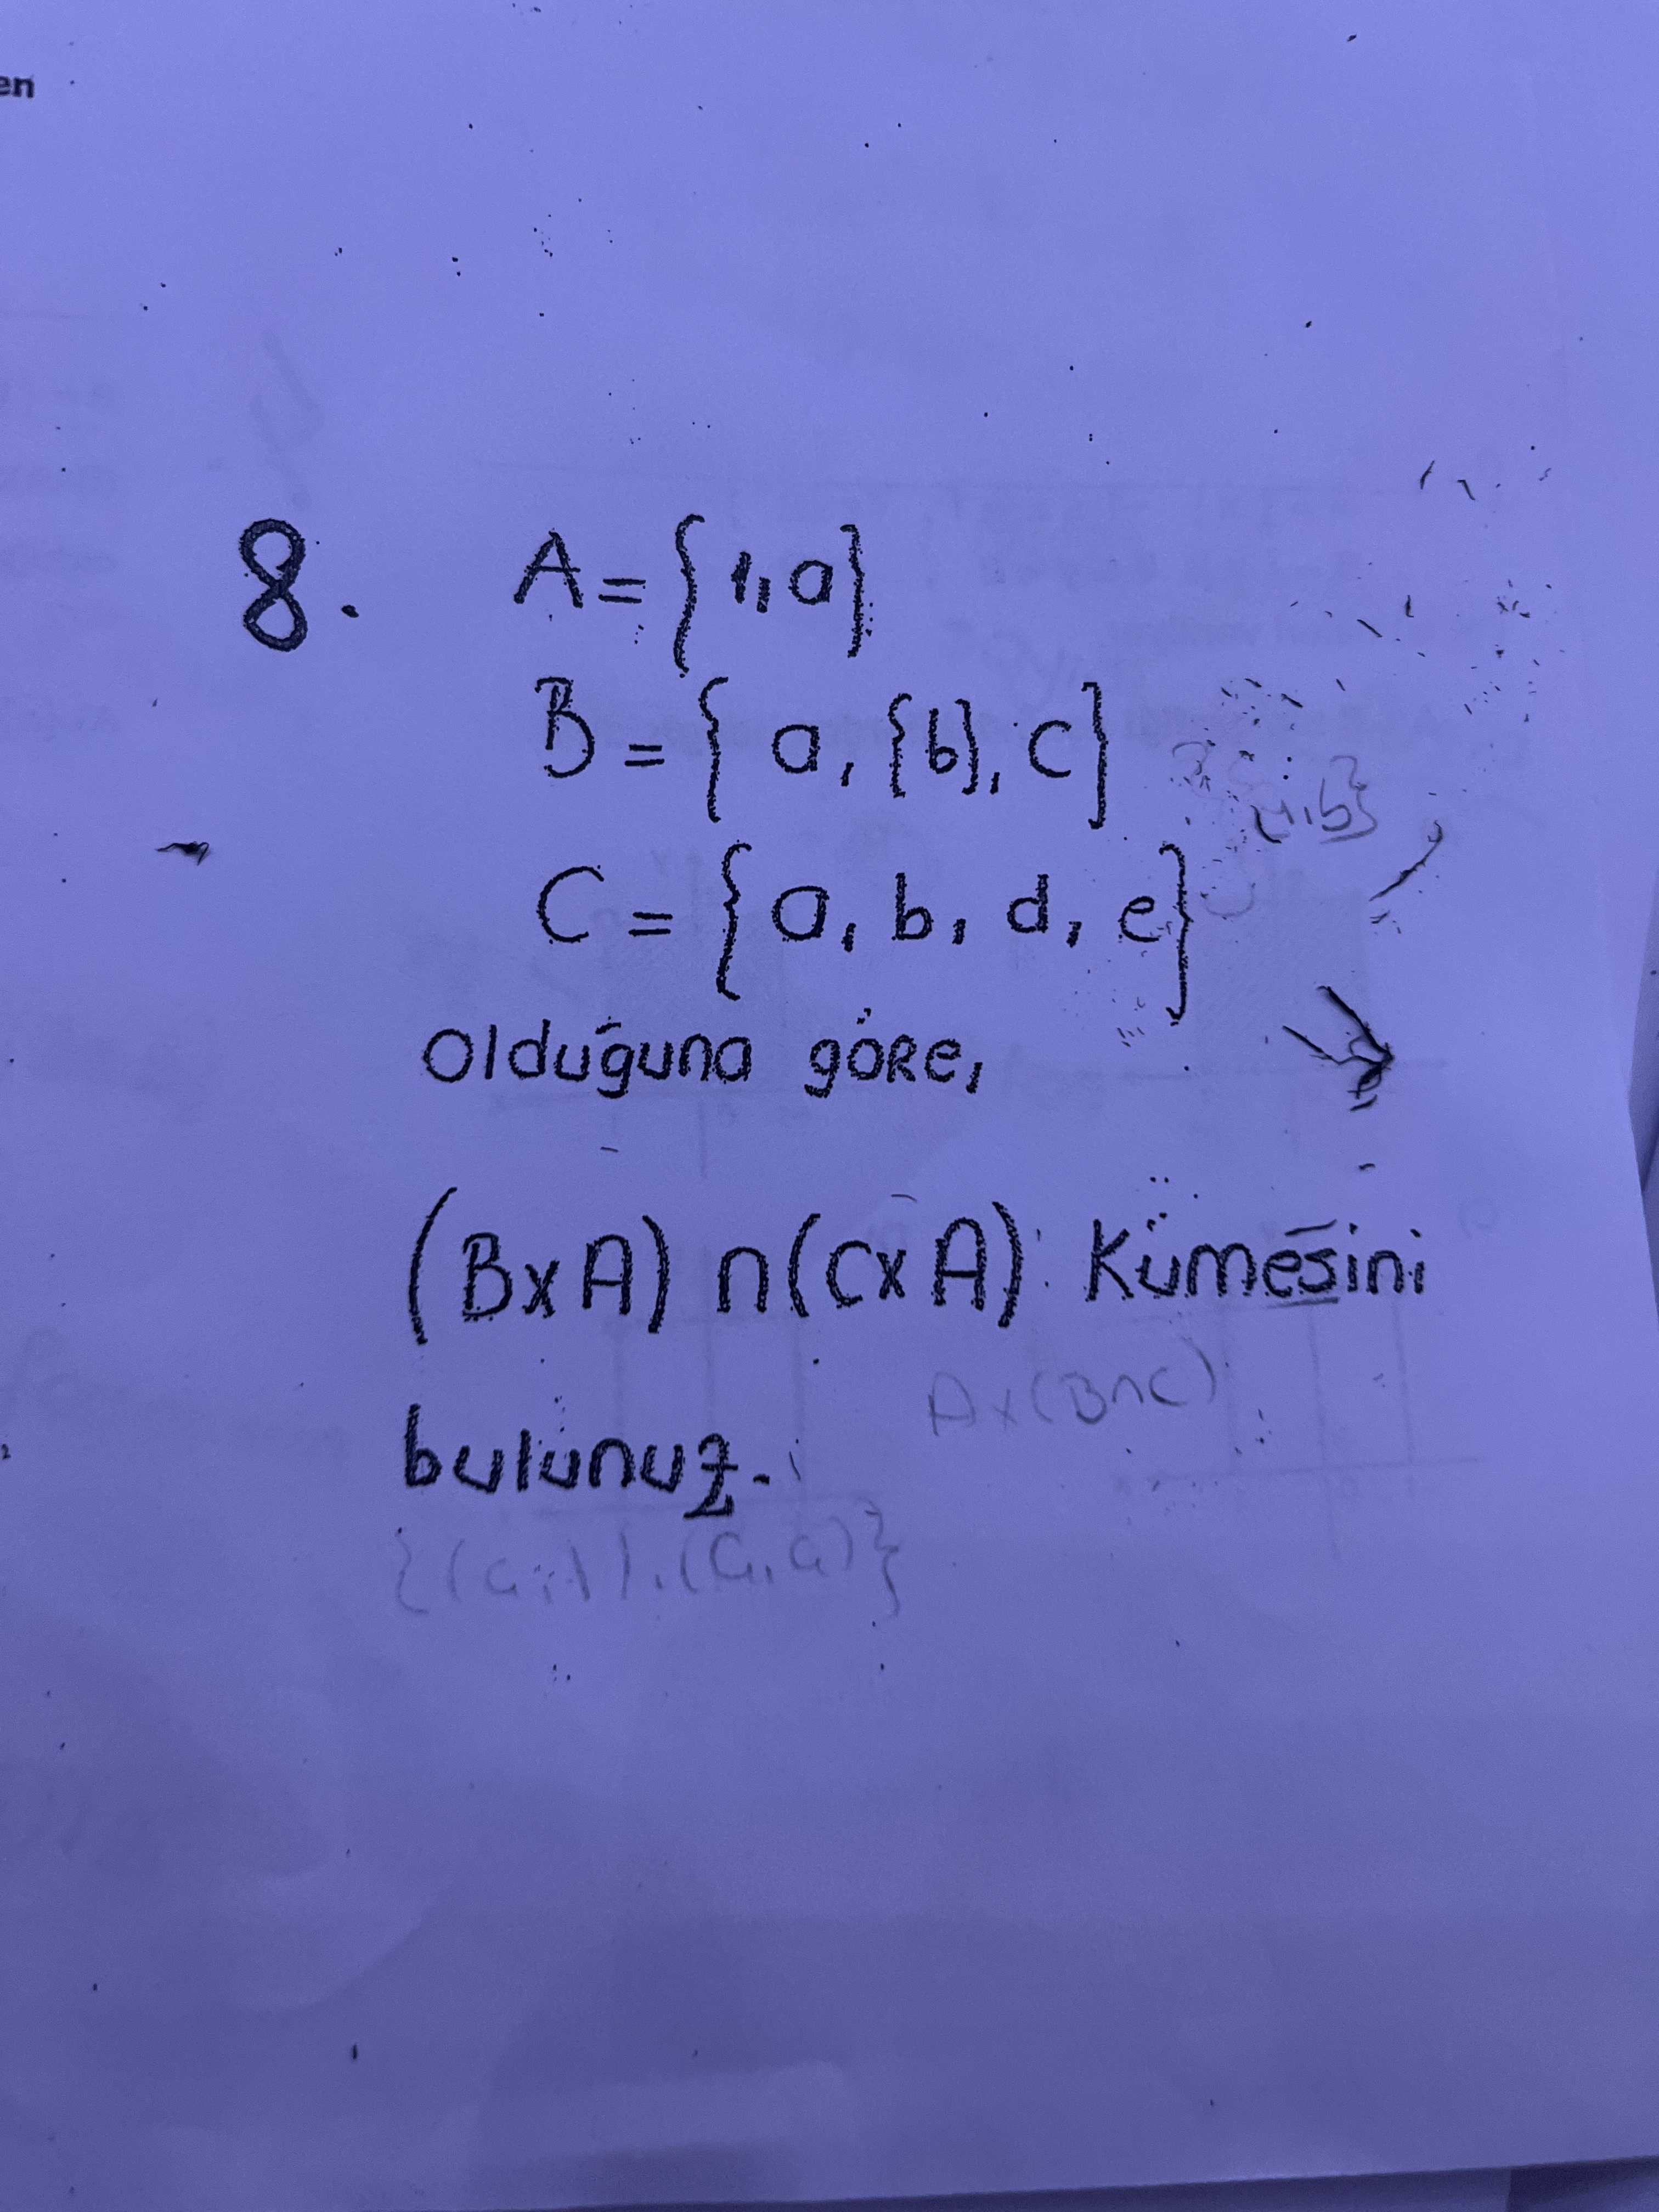 en
8. A = {1, a}
B = {a, {b}, c}
C = {a, b, d, e}
Olduğuna göre,
(B x A) ∩ (C x A) Kümesini
A x (B∩C)
bulunuz.
{(a,1), (a,a)}